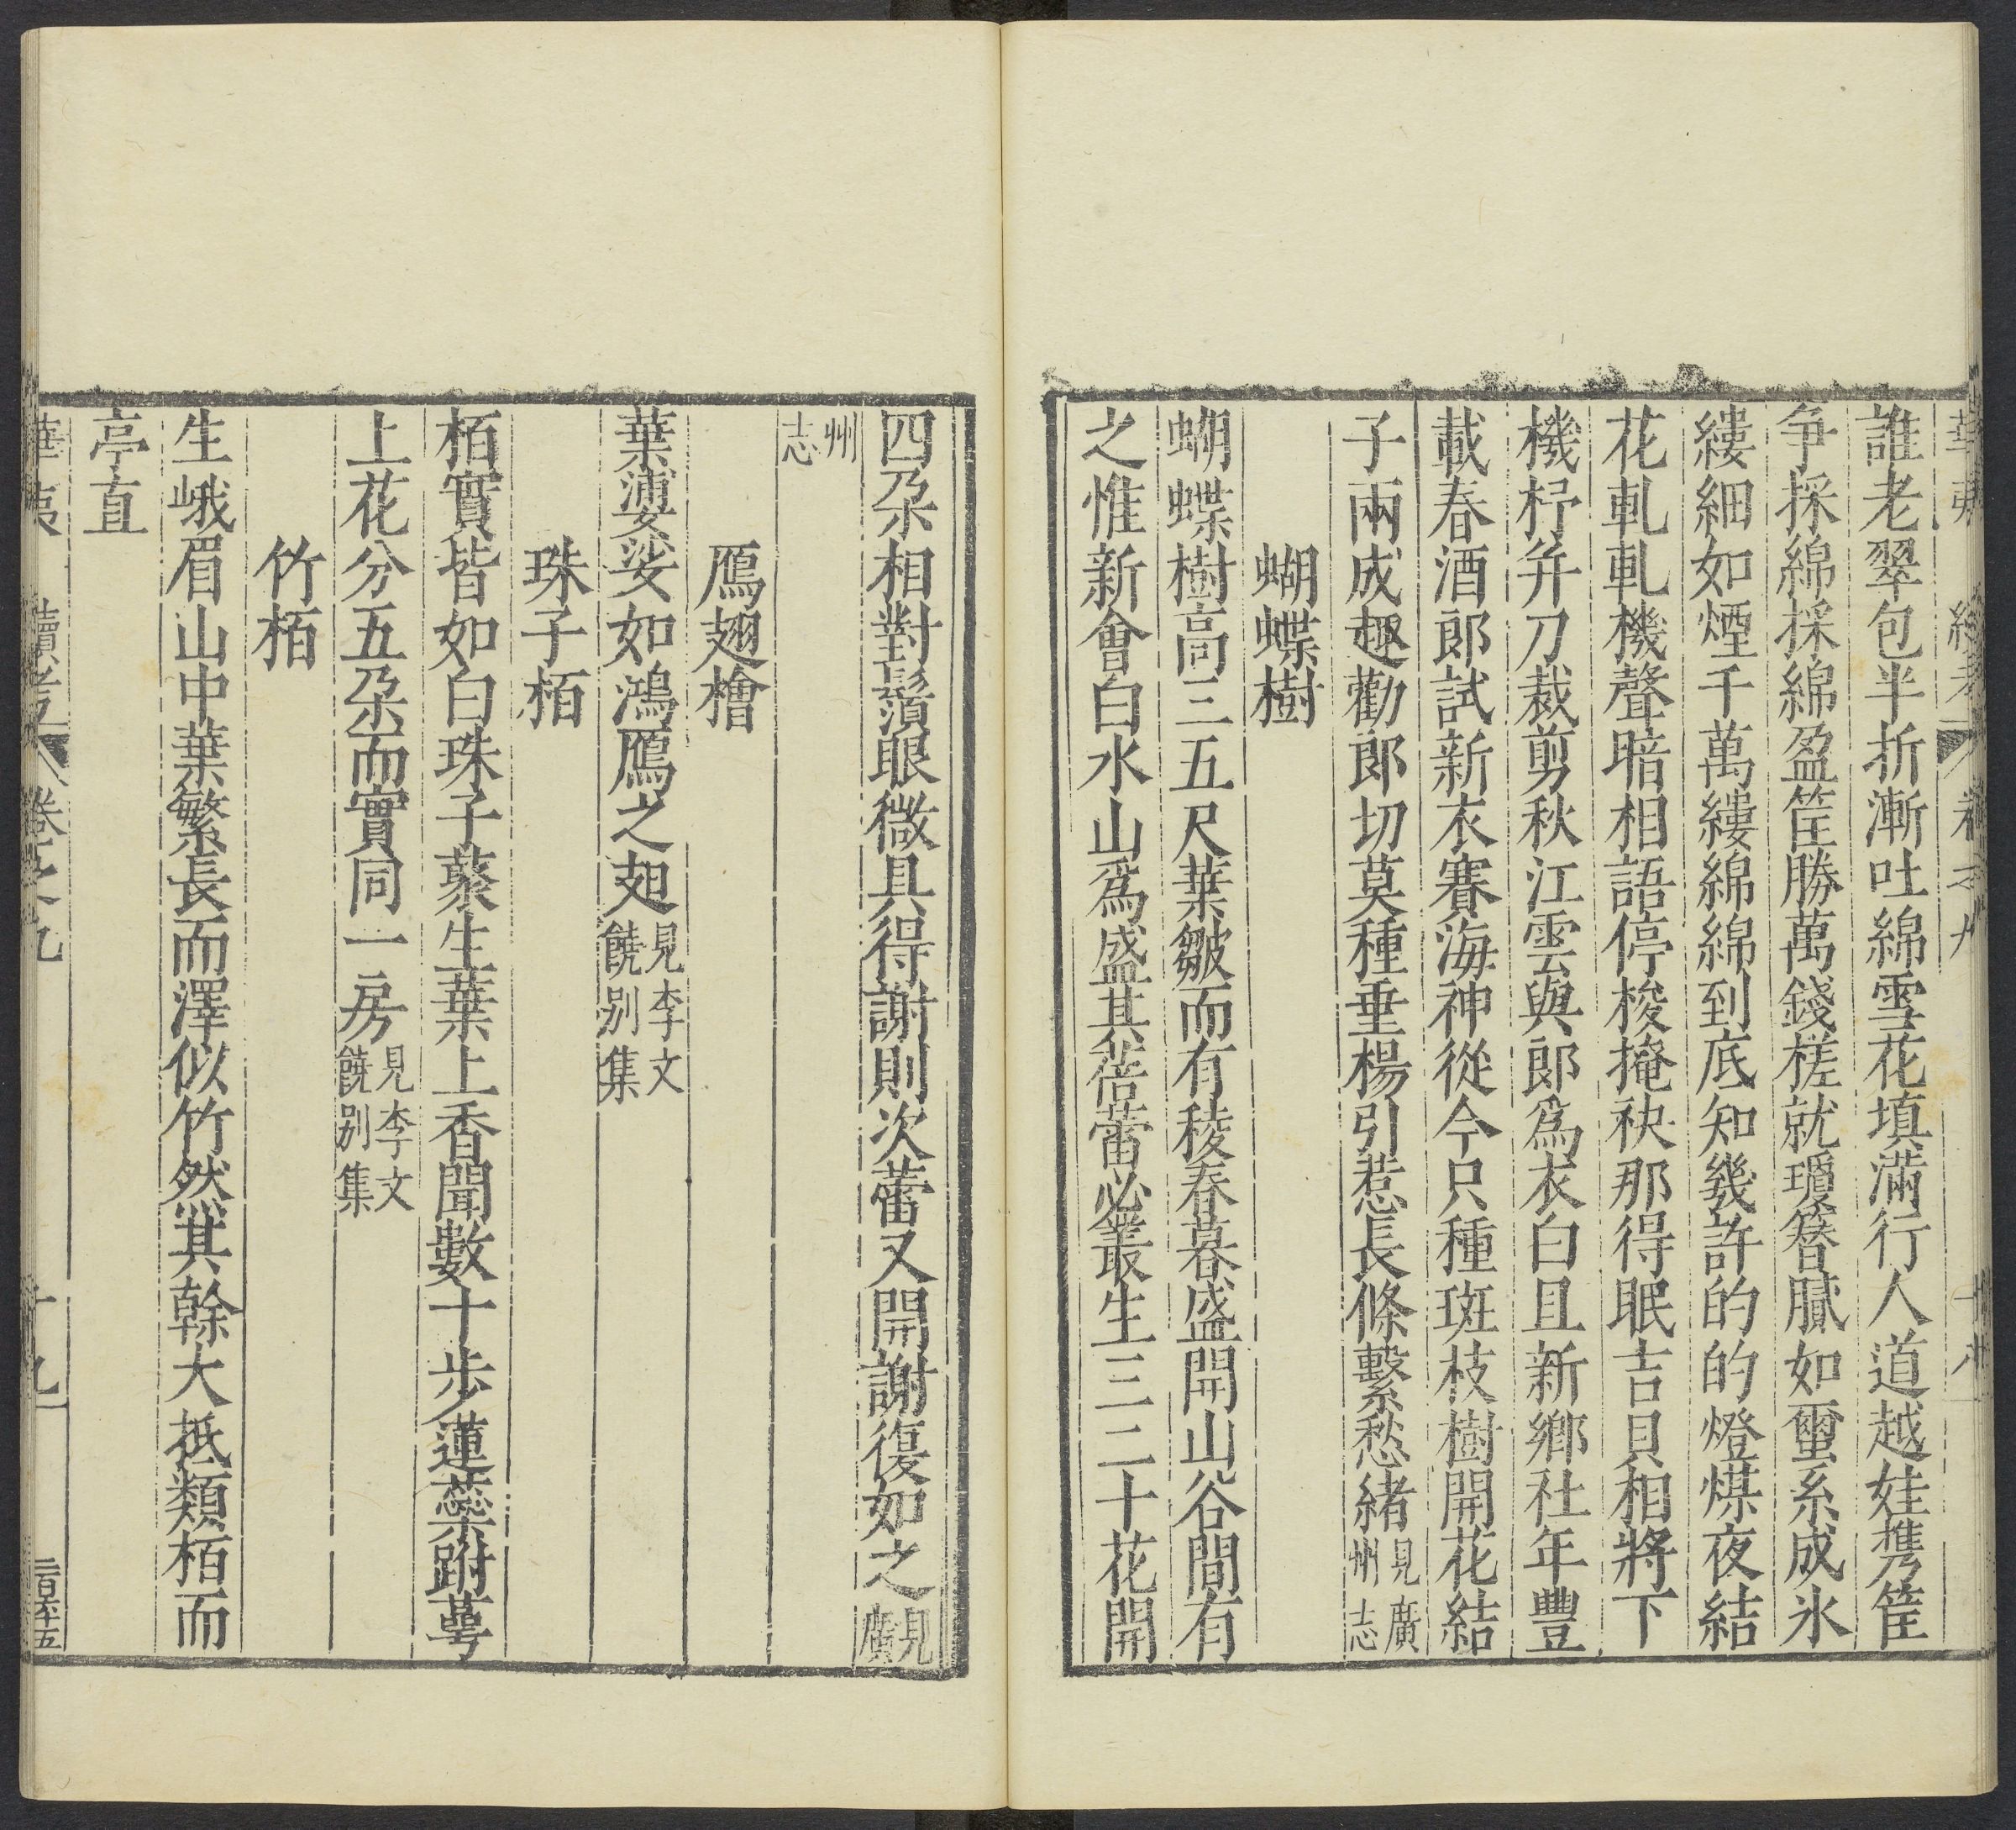 誰老翠包半折漸吐綿雪花填滿行人道越娃攜筐
争採綿採綿盈筐勝萬錢槎就瓊簪膩如䗿系成氷
縷細如煙千萬縷綿綿到底知幾許的的燈煤夜結
花軋軋機聲暗相語停梭掩袂那得眠吉貝相將下
機杼并刀裁剪秋江雲與郎為衣白且新鄉社年豐
載春酒郎試新衣賽海神從今只種斑枝樹開花結
子兩成趣勸郎切莫種垂楊引惹長條繫愁緒見廣州志
蝴蝶樹
蝴蝶樹高三五尺葉皺而有稜春暮盛開山谷間有
之惟新會白水山爲盛其蓓蕾必叢生三二十花開
四朶相對鬚眼微具得謝則次蕾又開謝復如之見廣
州志
鴈翅檜
葉婆娑如鴻鴈之翅見李文饒別集
珠子栢
栢實皆如白珠子藂生葉上香聞數十步蓮蘂跗萼
上花分五朶而實同一房見李文饒別集
竹栢
生峨眉山中葉繁長而澤似竹然其幹大抵類栢而
亭直
華夷 續考 卷之九 十九